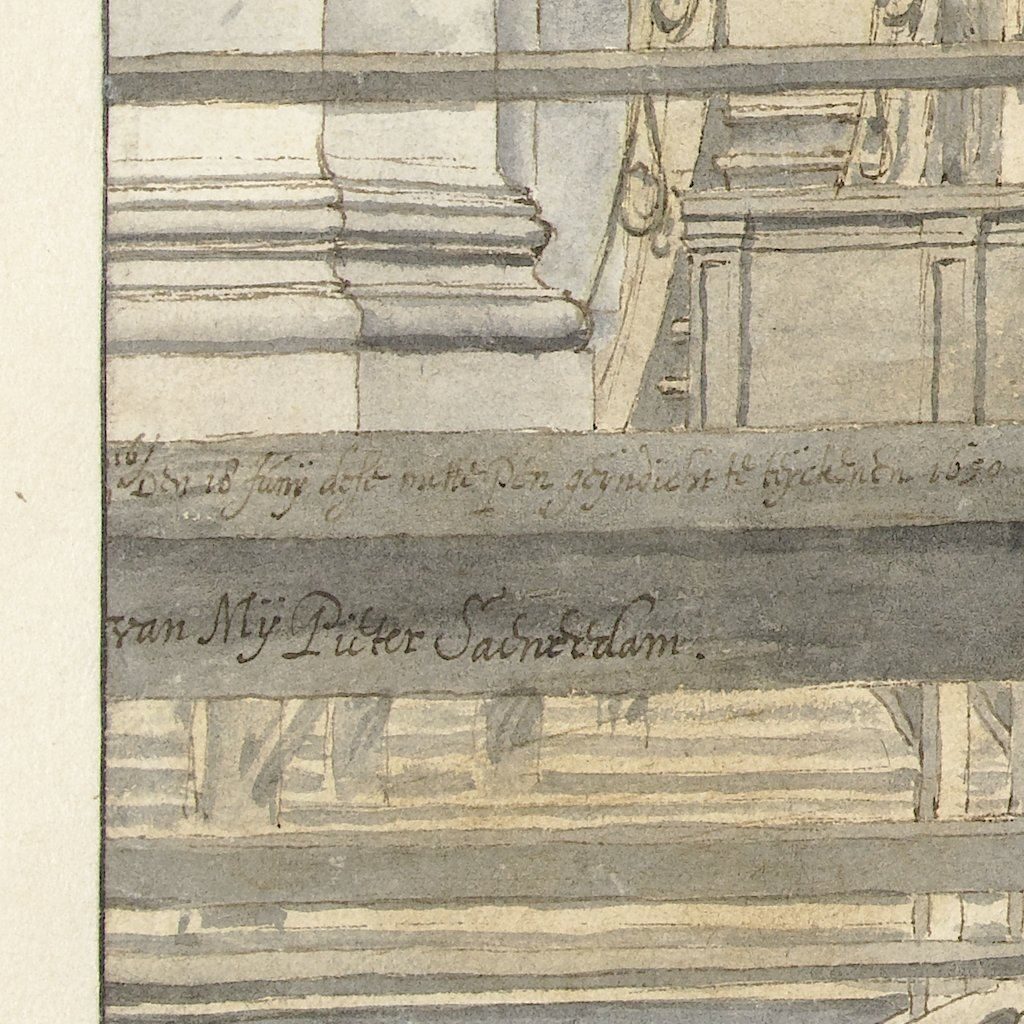 Den 18 Junij dese mette Pen geijndicht te teijckenen 1650
van Mij Pieter Saenredam.